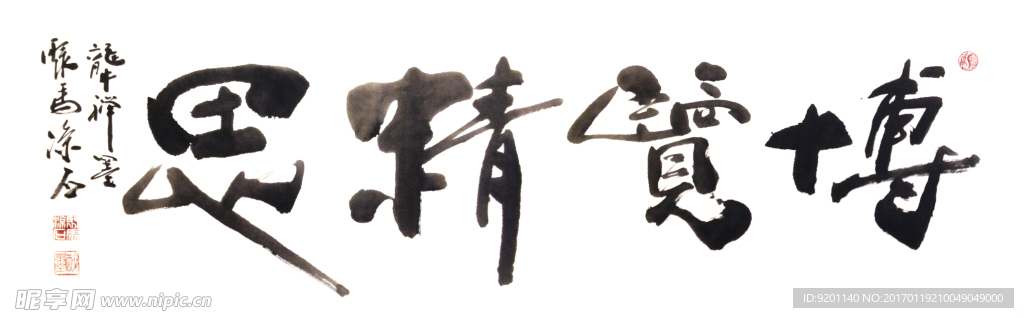 博覽精思
龍牛禅墨
驟馬滌石
昵享网 www.nipic.cn
ID:9201140 NO:20170119210049049000